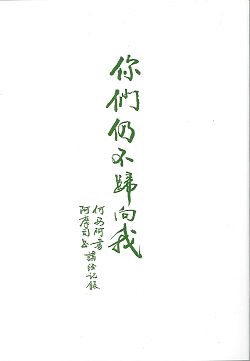 你們仍不歸向我
何西阿書
阿摩司書
講經記錄